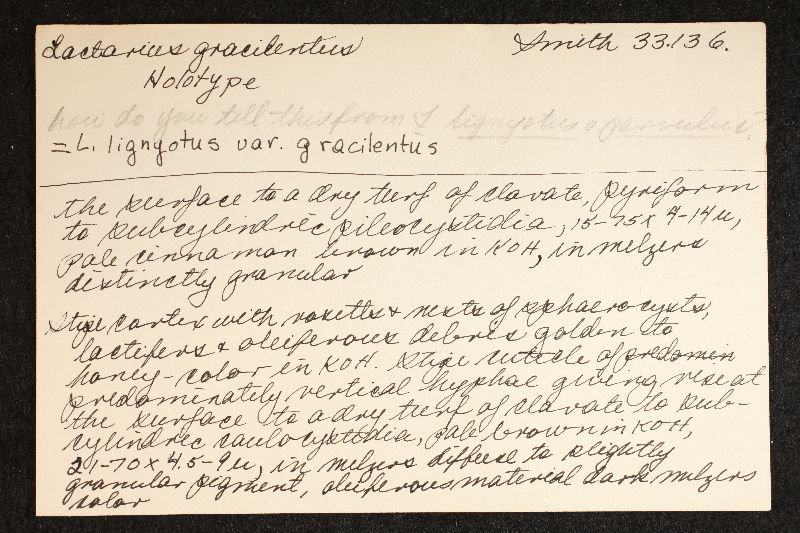 Lactarius gracilentus Smith 33136.
Holotype
how do you tell this from L lignyotus
= L. lignyotus var. gracilentus
the surface to a dry turf of clavate, pyriform
to subcylindric pileocystidia, 15-75 x 4-14 u,
pale cinnamon brown in KOH, in melzers
distinctly granular
Stipe cortex with rosetts & nests of sphaerocysts,
lactifers & oleiferous debris golden to
honey-color in KOH. Stipe cuticle of predomin
predominately vertical hyphae giving rise at
the surface to a dry turf of clavate to sub-
cylindric caulocystidia, pale brown in KOH,
21-70 x 4.5-9 u, in melzers diffuse to slightly
granular pigment, oleiferous material dark melzers
color